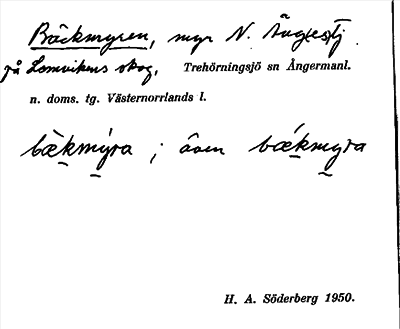 Bäckmyren, myr N. Ängestj.
på Lomvikens skog, Trehörningsjö sn Ångermanl.
n. doms. tg. Västernorrlands l.
bækmýra ; även bǽkmyra
H. A. Söderberg 1950.